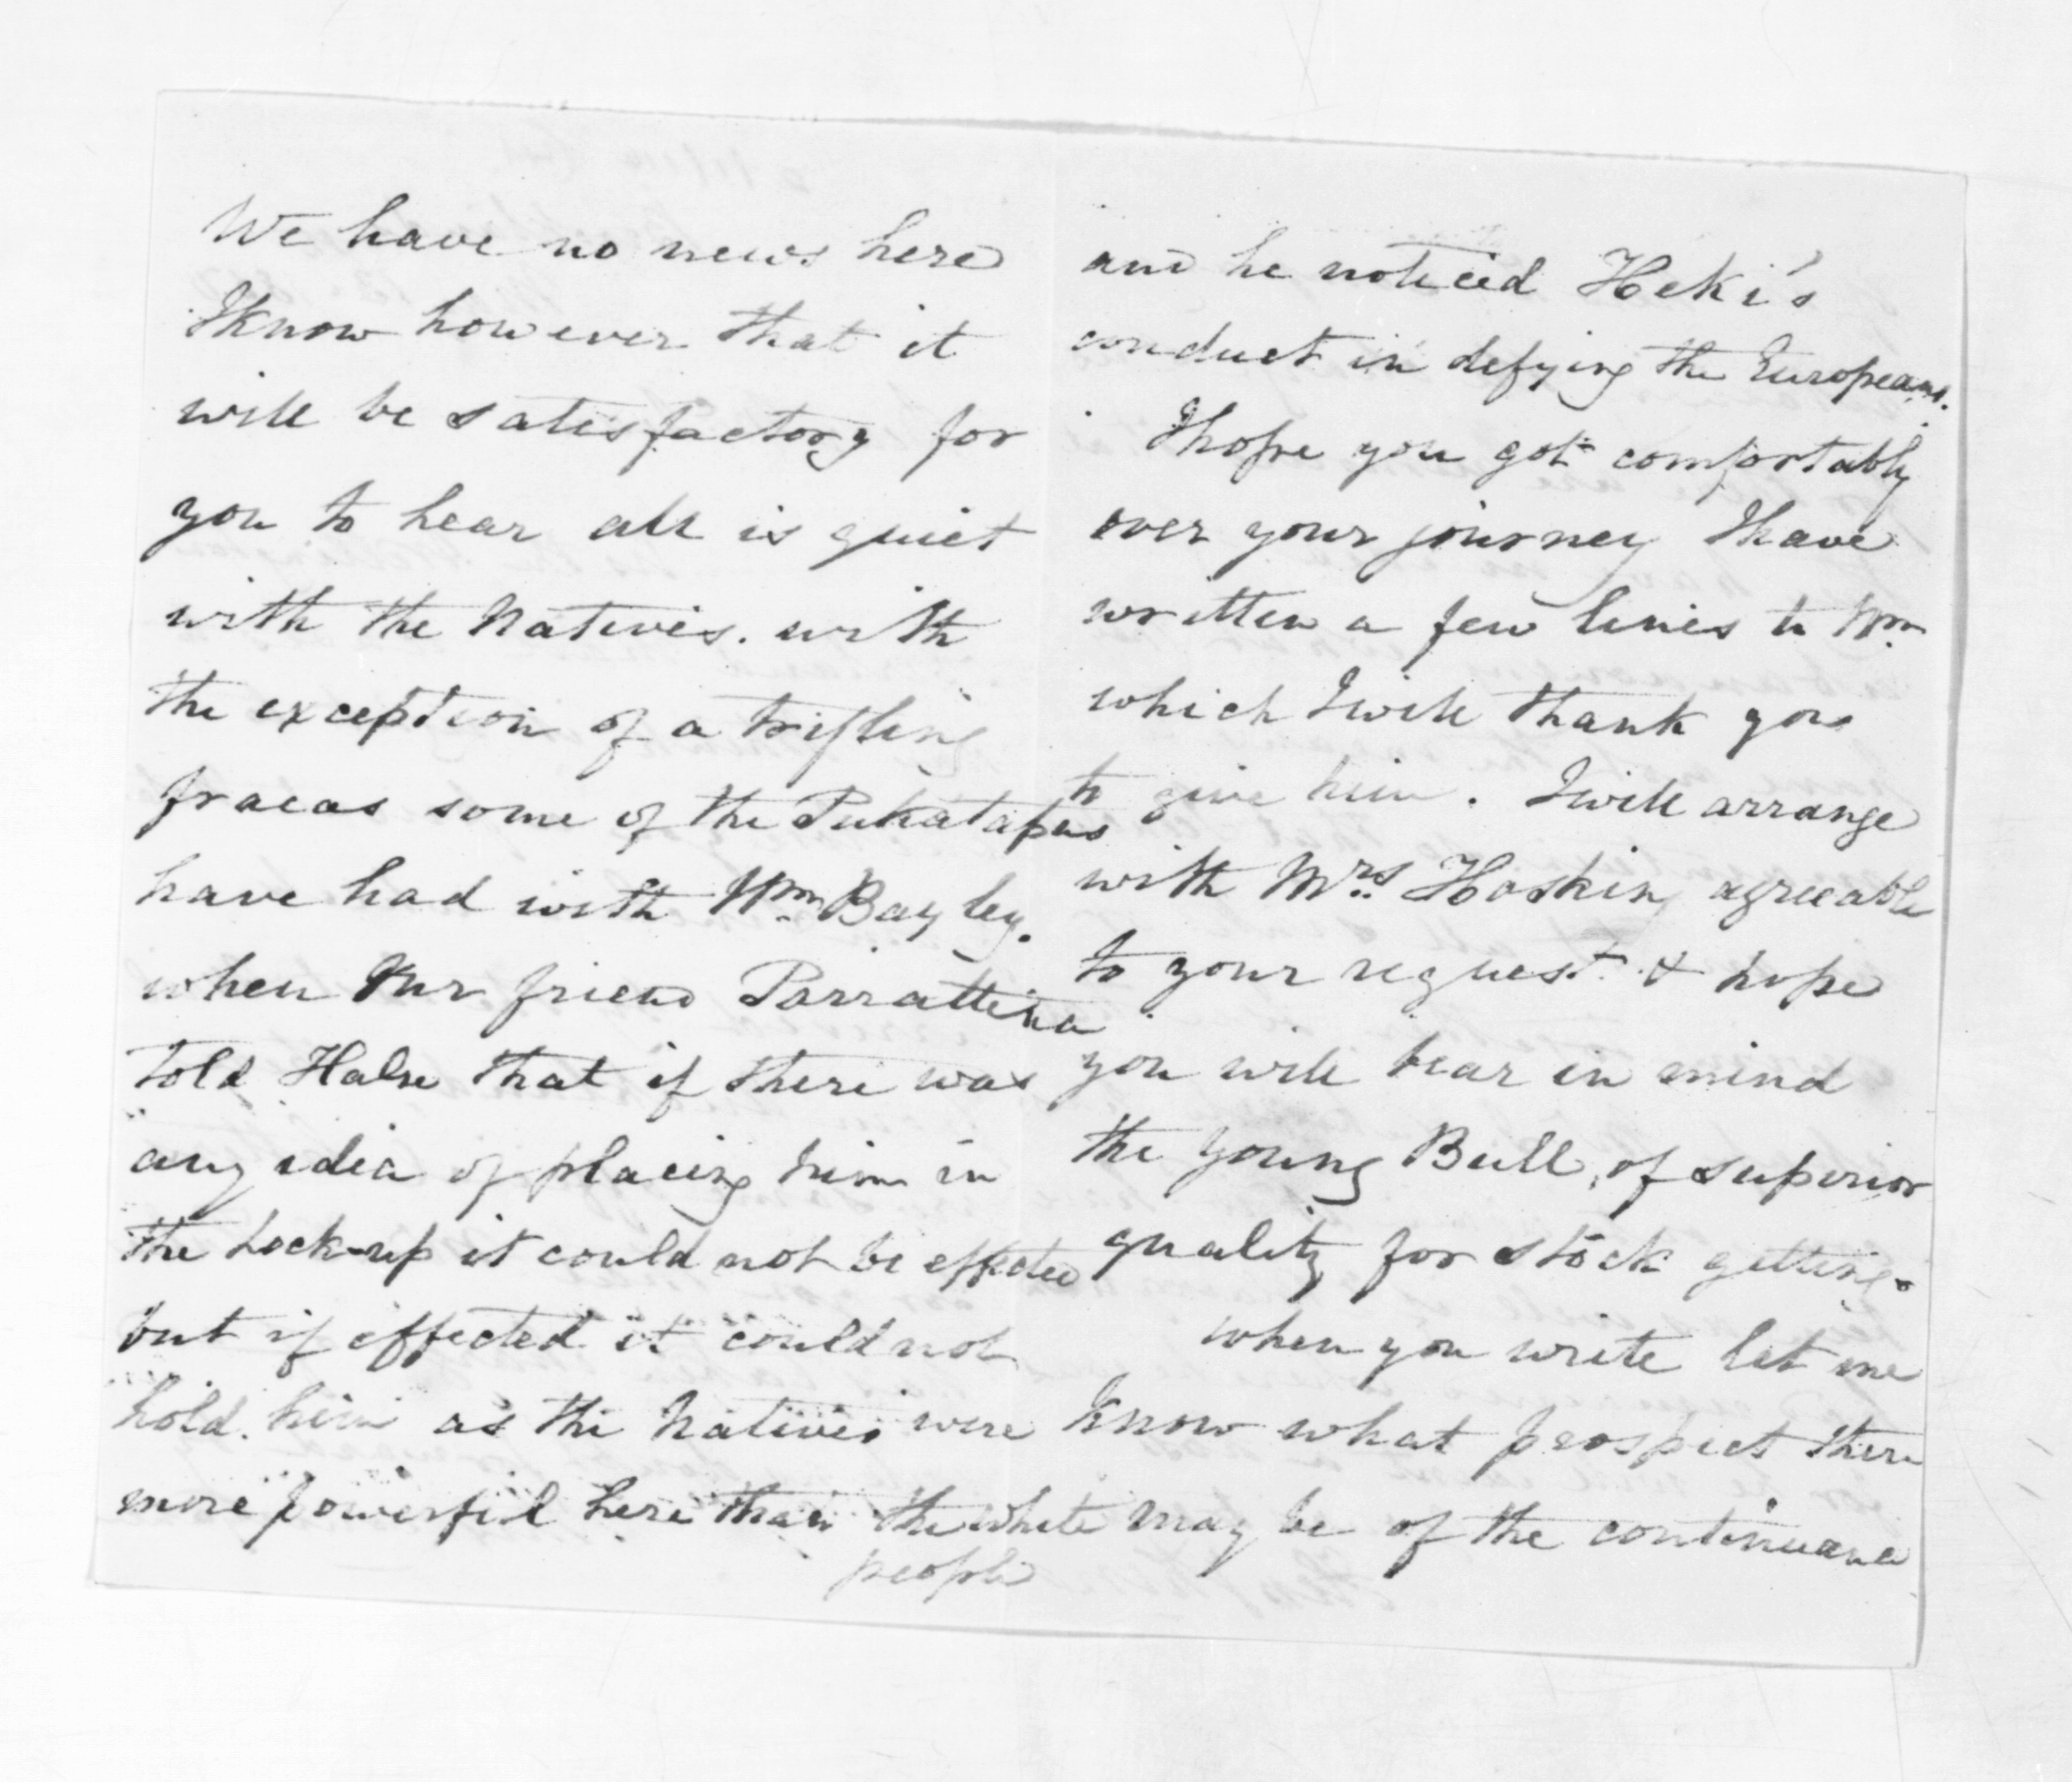 We have no news here
I know however that it
will be satisfactory for
you to hear all is quiet
with the Natives. with
the exception of a trifling
fracas some of the Pukatapus
have had with Wm Bayley.
when our friend Parrattina
told Halse that if there was
any idea of placing him in
the Lock-up it could not be effected
but if effected it could not
hold him as the Natives were
more powerful here than the white
people
and he noticed Heki's
conduct in defying the Europeans.
I hope you got comfortably
over your journey I have
written a few lines to Wm
which I will thank you
to give him. I will arrange
with Mrs Hoskin agreeable
to your request & hope
you will bear in mind
the young Bull, of superior
quality for stock getting.
when you write let me
know what prospect there
may be of the continuance